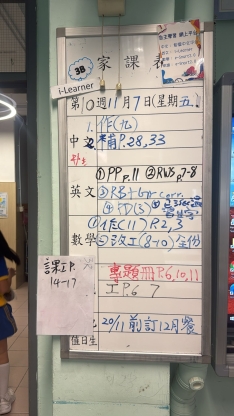 3B 家課表
i-Learner
第10週11月7日(星期五)
1.作(九)
中文 補P.28,33
①PP p.11 ②RWS p7-8
英文 ③RB+Gr corr.
④PD(3)
①作(11)P.2,3
數學 ②改工(8-10)全份
課工P. 14-17
專題冊P.6,10,11
工P.6 7
20/11前訂12月餐
值日生